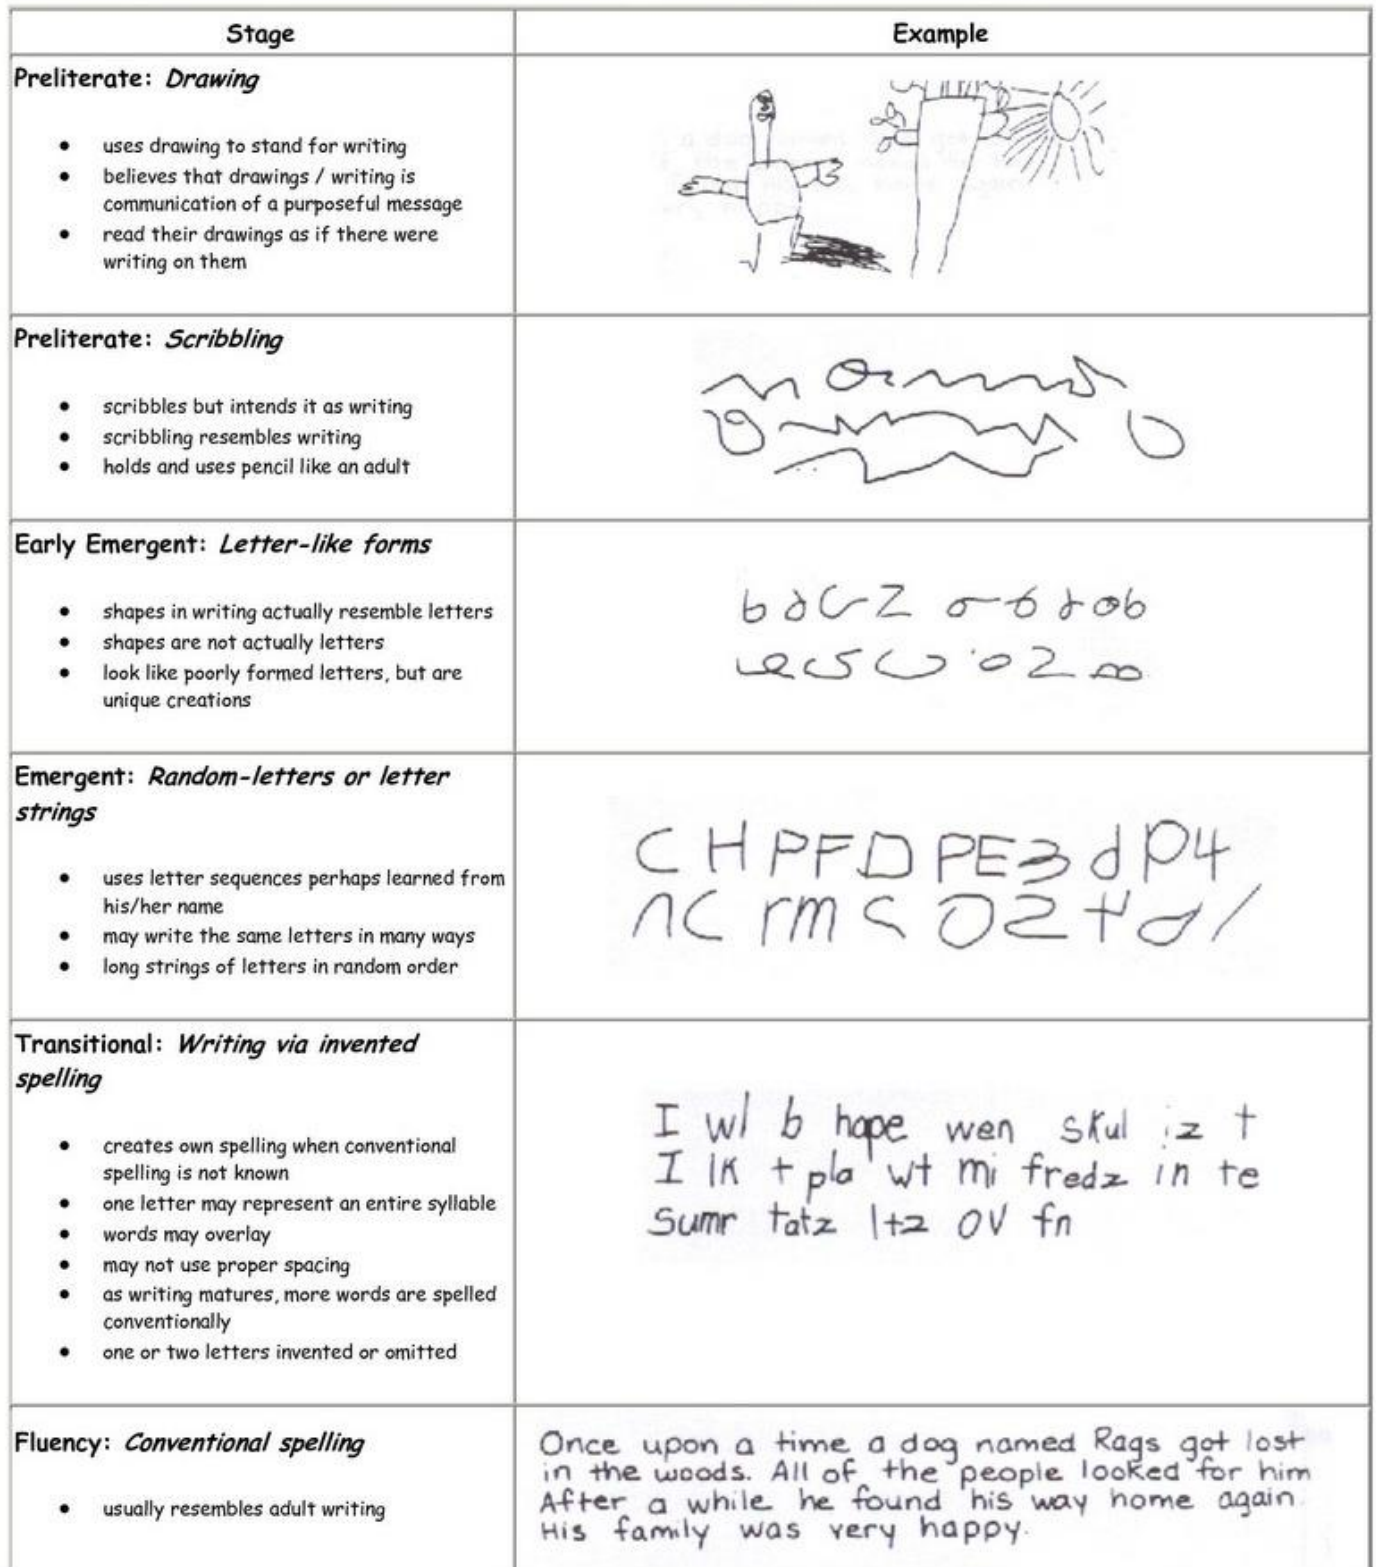 Stage
Example
Preliterate: Drawing
• uses drawing to stand for writing
• believes that drawings / writing is
communication of a purposeful message
• read their drawings as if there were
writing on them
Preliterate: Scribbling
• scribbles but intends it as writing
• scribbling resembles writing
• holds and uses pencil like an adult
Early Emergent: Letter-like forms
• shapes in writing actually resemble letters
• shapes are not actually letters
• look like poorly formed letters, but are
unique creations
Emergent: Random-letters or letter
strings
• uses letter sequences perhaps learned from
his/her name
• may write the same letters in many ways
• long strings of letters in random order
C H P F D P E 3 d P 4
n C r m c O 2 t d /
Transitional: Writing via invented
spelling
• creates own spelling when conventional
spelling is not known
• one letter may represent an entire syllable
• words may overlay
• may not use proper spacing
• as writing matures, more words are spelled
conventionally
• one or two letters invented or omitted
I wl b hape wen skul iz t
I lk t pla wt mi fredz in te
Sumr tatz ltz OV fn
Fluency: Conventional spelling
• usually resembles adult writing
Once upon a time a dog named Rags got lost
in the woods. All of the people looked for him
After a while he found his way home again.
His family was very happy.